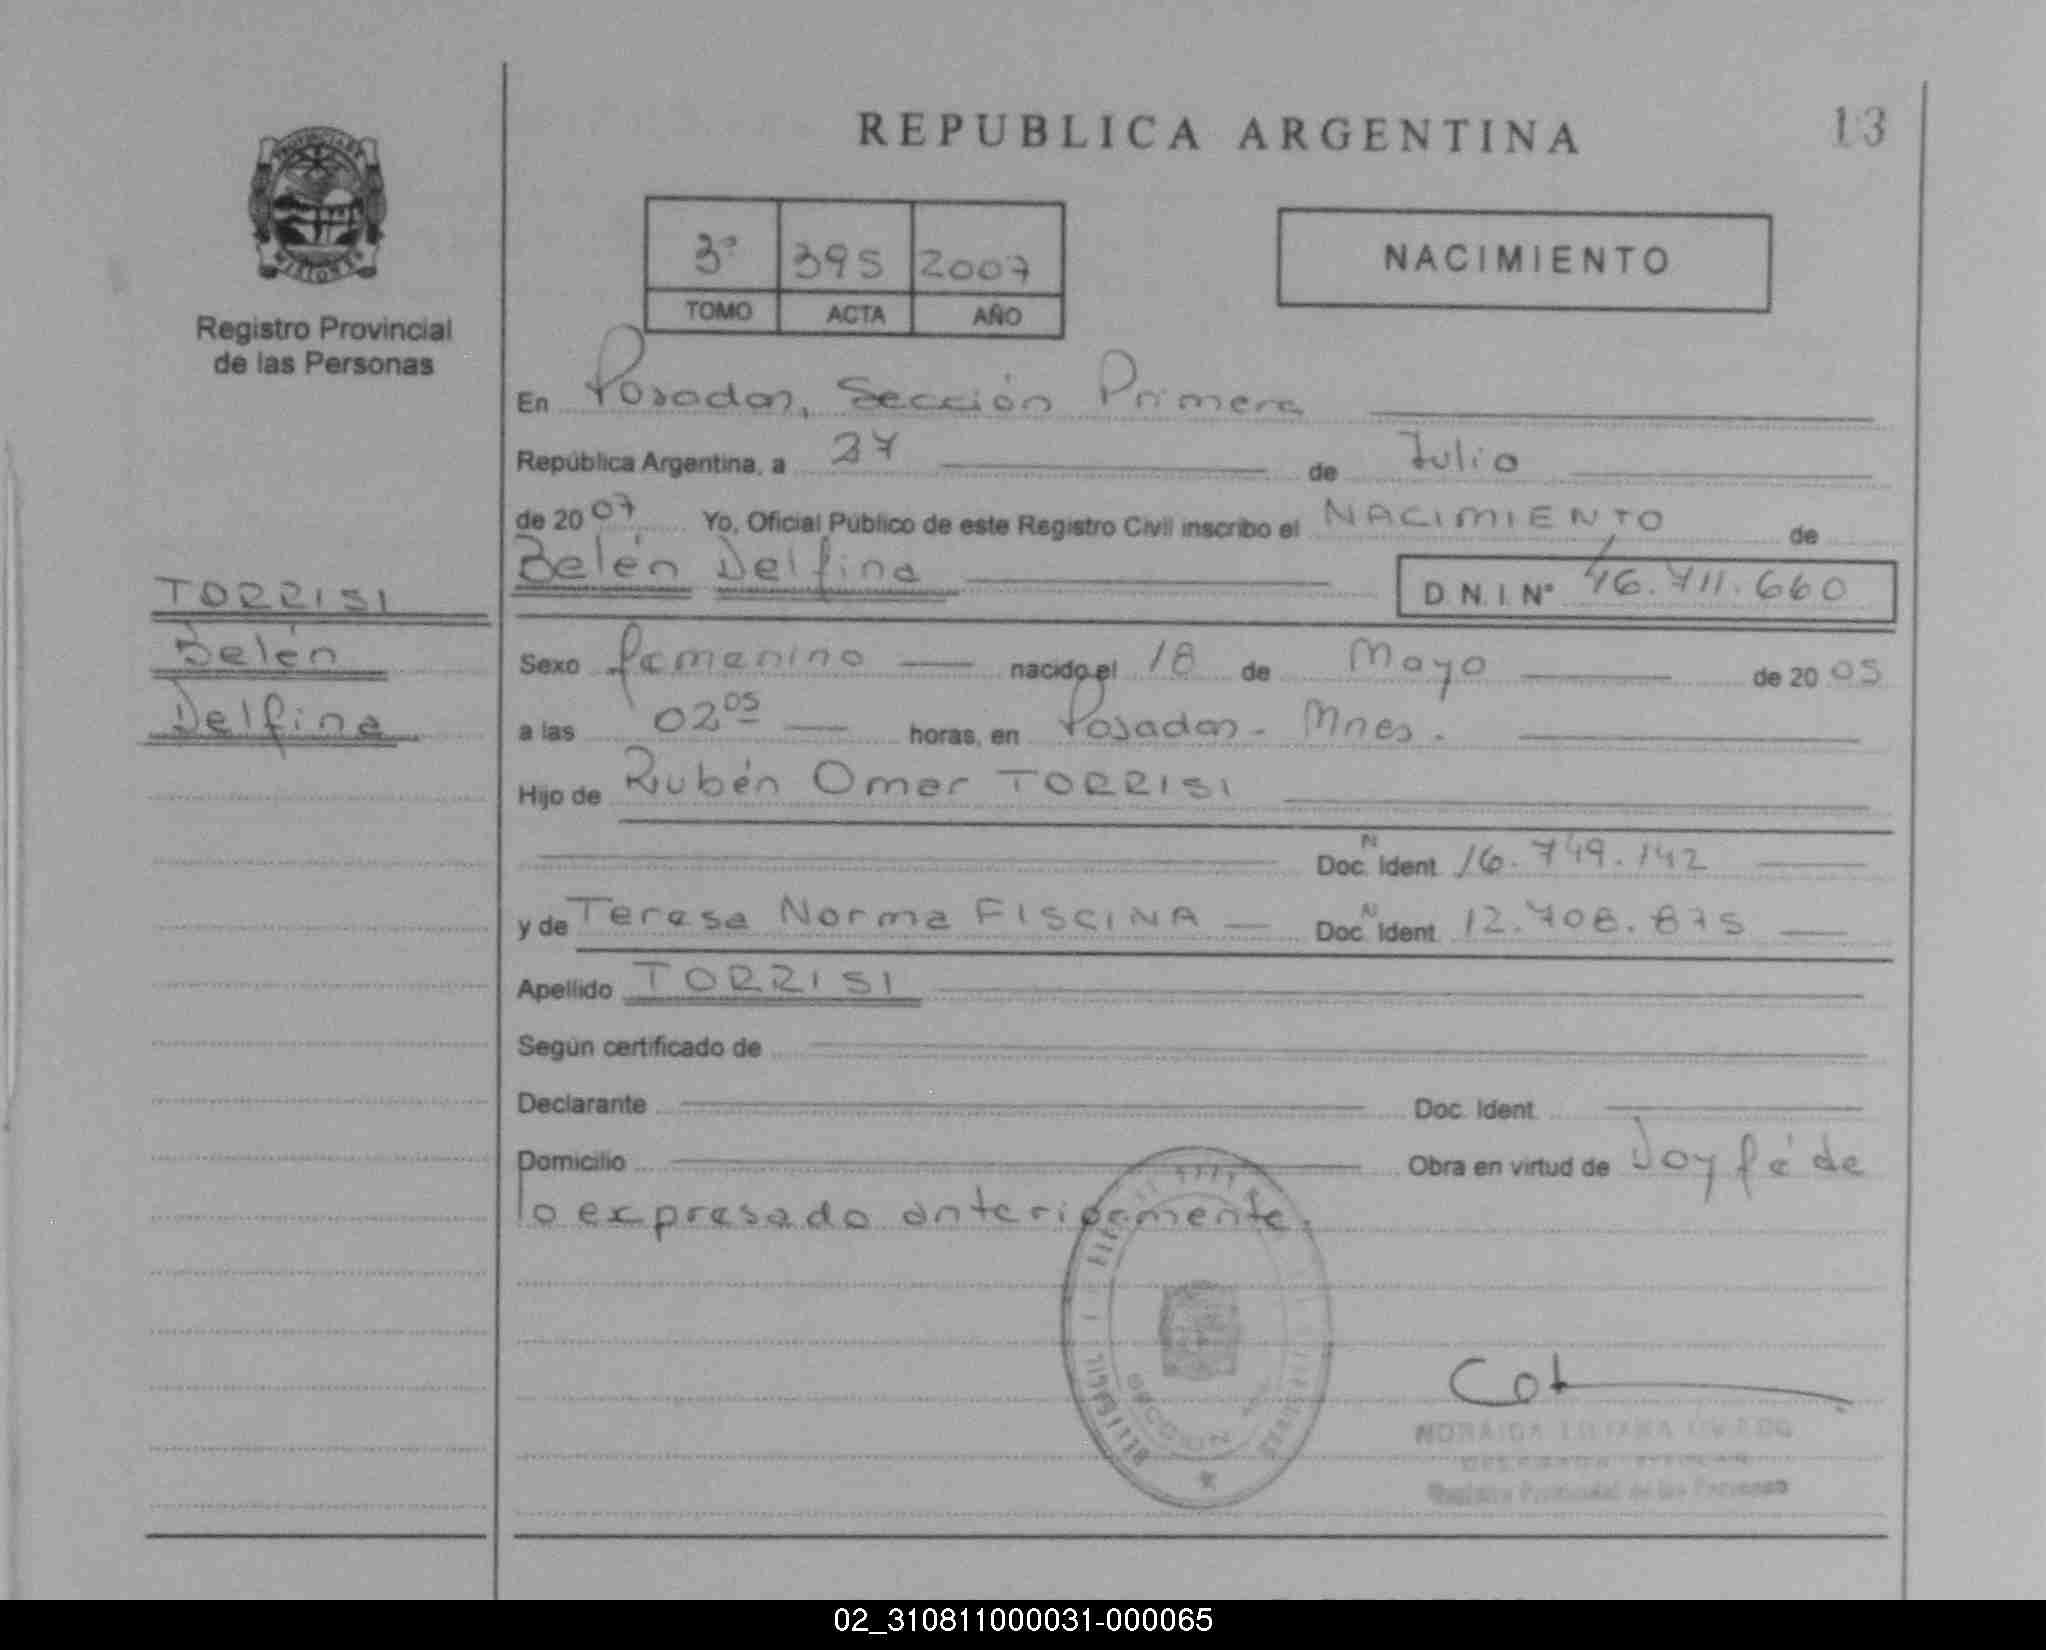 REPUBLICA ARGENTINA
13
PROVINCIA DE
MISIONES
Registro Provincial
de las Personas
3º 395 2007
TOMO ACTA AÑO
NACIMIENTO
En Posadas, Sección Primera
República Argentina, a 27 de Julio
de 2007 Yo, Oficial Público de este Registro Civil inscribo el NACIMIENTO de
Belén Delfina D.N.I. Nº 46.711.660
TORRISI
Belén
Delfina
Sexo femenino nacido el 18 de Mayo de 2005
a las 02 05 horas, en Posadas - Mnes.
Hijo de Rubén Omar TORRISI
Doc. Ident. N 16.749.142
y de Teresa Norma FISCINA Doc. Ident. N 12.708.875
Apellido TORRISI
Según certificado de
Declarante Doc. Ident.
Domicilio Obra en virtud de Doy fé de
lo expresado anteriormente.
NORAIDA LILIANA
Registro Provincial de las Personas
02_310811000031-000065